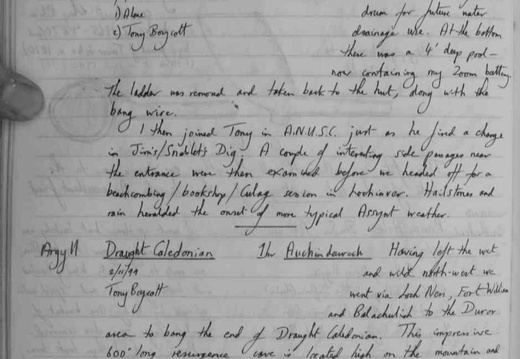 1) Alone
2) Tony Boycott
down for future water
drainage use. At the bottom
there was a 4' deep pool -
now containing my zoom battery.
The ladder was removed and taken back to the hut, along with the
bang wire.
I then joined Tony in A.N.U.S.C. just as he fired a charge
in Jim's/Snablet's Dig. A couple of interesting side passages near
the entrance were then examined before we headed off for a
beachcombing/bookshop/Culag session in Lochinver. Hailstones and
rain heralded the onset of more typical Assynt weather.
Argyll Draught Caledonian 1hr Auchindarroch Having left the wet
2/11/99 and wild north-west we
Tony Boycott went via Loch Ness, Fort William
and Balachulish to the Duror
area to bang the end of Draught Caledonian. This impressive
600' long resurgence cave is located high on the mountain and